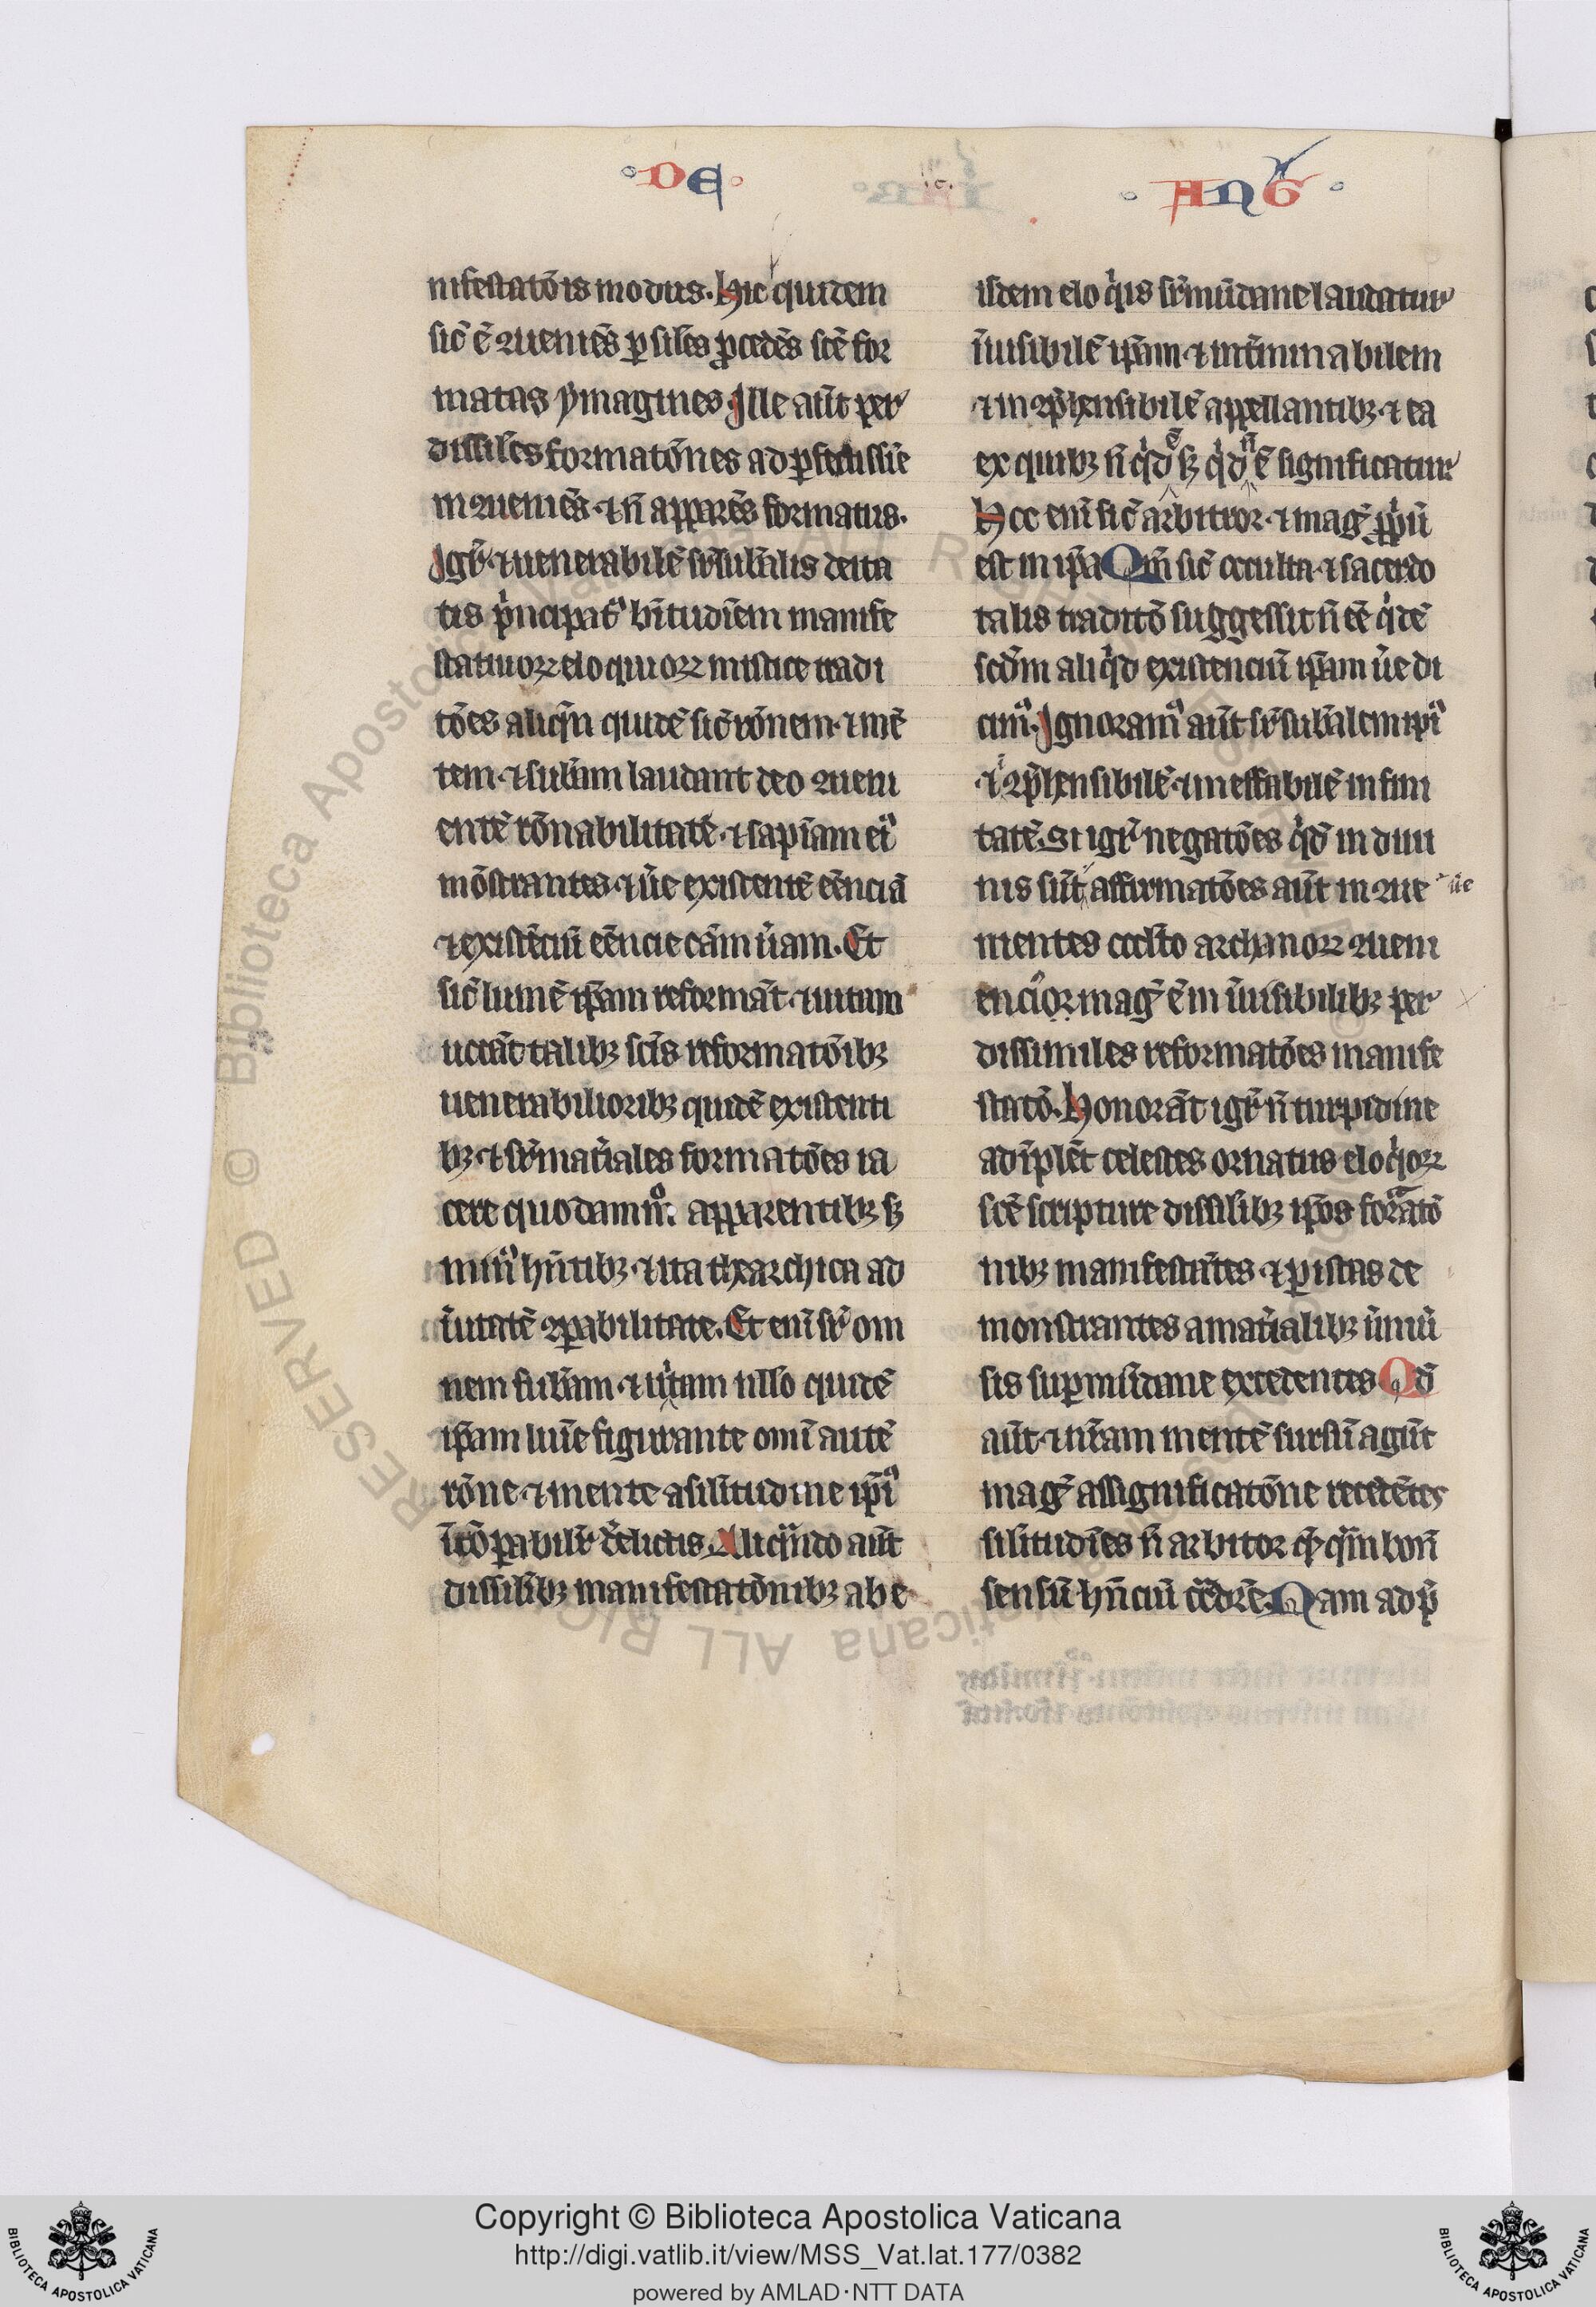 DE
ANG
nifestatōis modus. Hic quidem
sic̄ ē ꝯueniēs ꝑ siłes ꝓcedēs scē for
matas ymagines Ille aūt per
dissiłes formatōnes ad ꝑfectissiē
inꝯueniēs ⁊ n̄ apparēs formatus.
Igr̄ ⁊ uenerabilē sr̄sub̄alis deita
tis p̄ncipatꝰ b̄itudīem manife
statiuoꝝ eloquioꝝ mistice tradi
tōes aliqn̄ quidē sic̄ rōnem ⁊ mē
tem ⁊ sub̄am laudant deo ꝯueni
entē rōnabilitatē ⁊ sapīam eiꝰ
mōstrantes ⁊ ūe existentē eēnciā
⁊ existēciū eēncie cām ūam. Et
sic̄ lumē ip̄am reformāt ⁊ uitam
uocāt talibꝫ scīs reformatōibꝫ
uenerabilioribꝫ quidē existenti
bꝫ ⁊ sr̄mat̄iales formatōes ia
cere quodammͦ. apparentibꝫ sꝫ
minꝰ hn̄tibꝫ ⁊ ita thearchica ad
ūitatē ꝯpabilitate. Et eni sr̄ om
nem sub̄am ⁊ uitam ullo quidē
ip̄am luīe figurante omī autē
rōne ⁊ mente a silitudine ip̄iꝰ
īcōꝑabilr̄ ðelictis. Aliqn̄do aūt
dissilibꝫ manifestatōnibꝫ ab e
isdem eloqͥis sr̄mūdane laudatur
īuisibilē ip̄am ⁊ int̄minabilem
⁊ inꝯp̄hensibilē appellantibꝫ ⁊ ea
ex quibꝫ n̄ qͥd ē sꝫ qͥd n̄ ē significatur
Hoc eni sic̄ arbitror ⁊ maḡ ꝓp̄ū
est in ip̄a Qm̄ sic̄ occulta ⁊ sacerdo
talis traditō suggessit n̄ eē qͥdē
scd̄m aliqͥd existenciū ip̄am ūe di
cimꝰ. Ignoramꝰ aūt sr̄sub̄alem ipiꝰ
⁊ īꝯp̄hensibilē ⁊ ineffabilē infini
tatē. Si igr̄ negatōes qͥdē in diui
nis sūt affirmatōes aūt inꝯue
ūe
nientes
archanoꝝ ꝯueni
encior maḡ ē in īuisibilibꝫ per
dissimiles reformatōes manife
statō. Honorāt igr̄ n̄ turpidine
adīplēt celestes ornatus eloqͥoꝝ
scē scripture dissilibꝫ ip̄os formatō
nibꝫ manifestātes ⁊ ꝑ istas de
monstrantes a mat̄ialibꝫ ūniū
sis suꝑmūdane excedentes Qd̄
aūt ⁊ nr̄am mentē sursū agūt
maḡ assignificatōne recedētes
silitudīes n̄ arbitor
bon̄
sensū hn̄ciū
Nam ad p̄
Copyright © Biblioteca Apostolica Vaticana
http://digi.vatlib.it/view/MSS_Vat.lat.177/0382
powered by AMLAD·NTT DATA